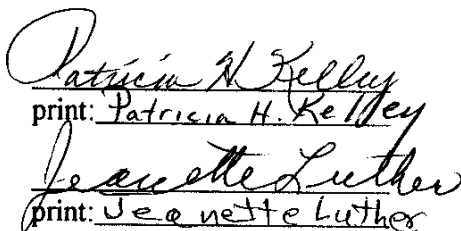 Patricia H Kelley
print: Patricia H. Kelley
Jeanette Luther
print: Jeanette Luther